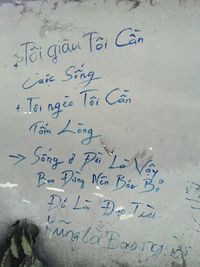 + Tôi giàu Tôi Cần
Cuộc Sống
+ Tôi ngèo Tôi Cần
Tấm Lòng
→ Sống ở Đời Là Vậy
Bạn Đừng Nên Bác Bỏ
Dù Là Đạp
Cũng là Đạo